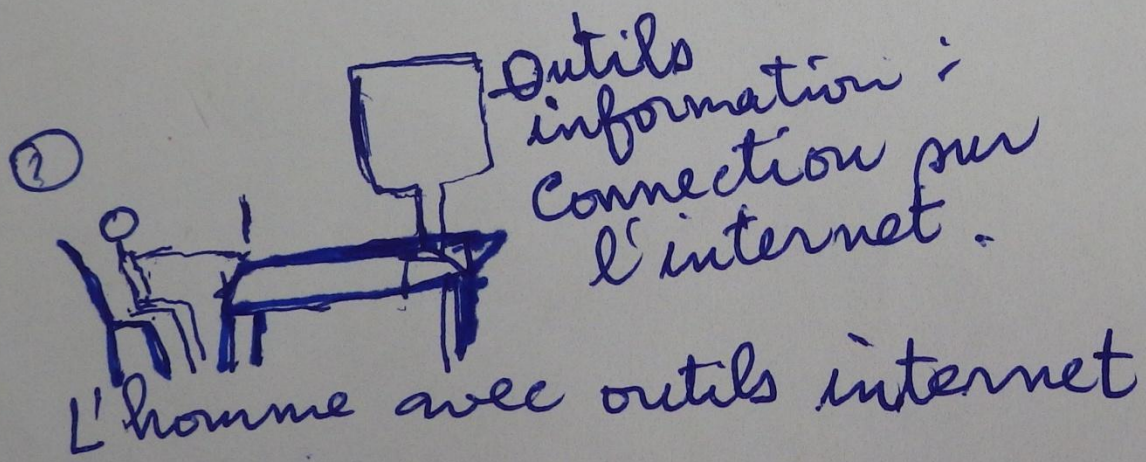 ?
Outils
information :
Connection sur
l'internet.
L'homme avec outils internet